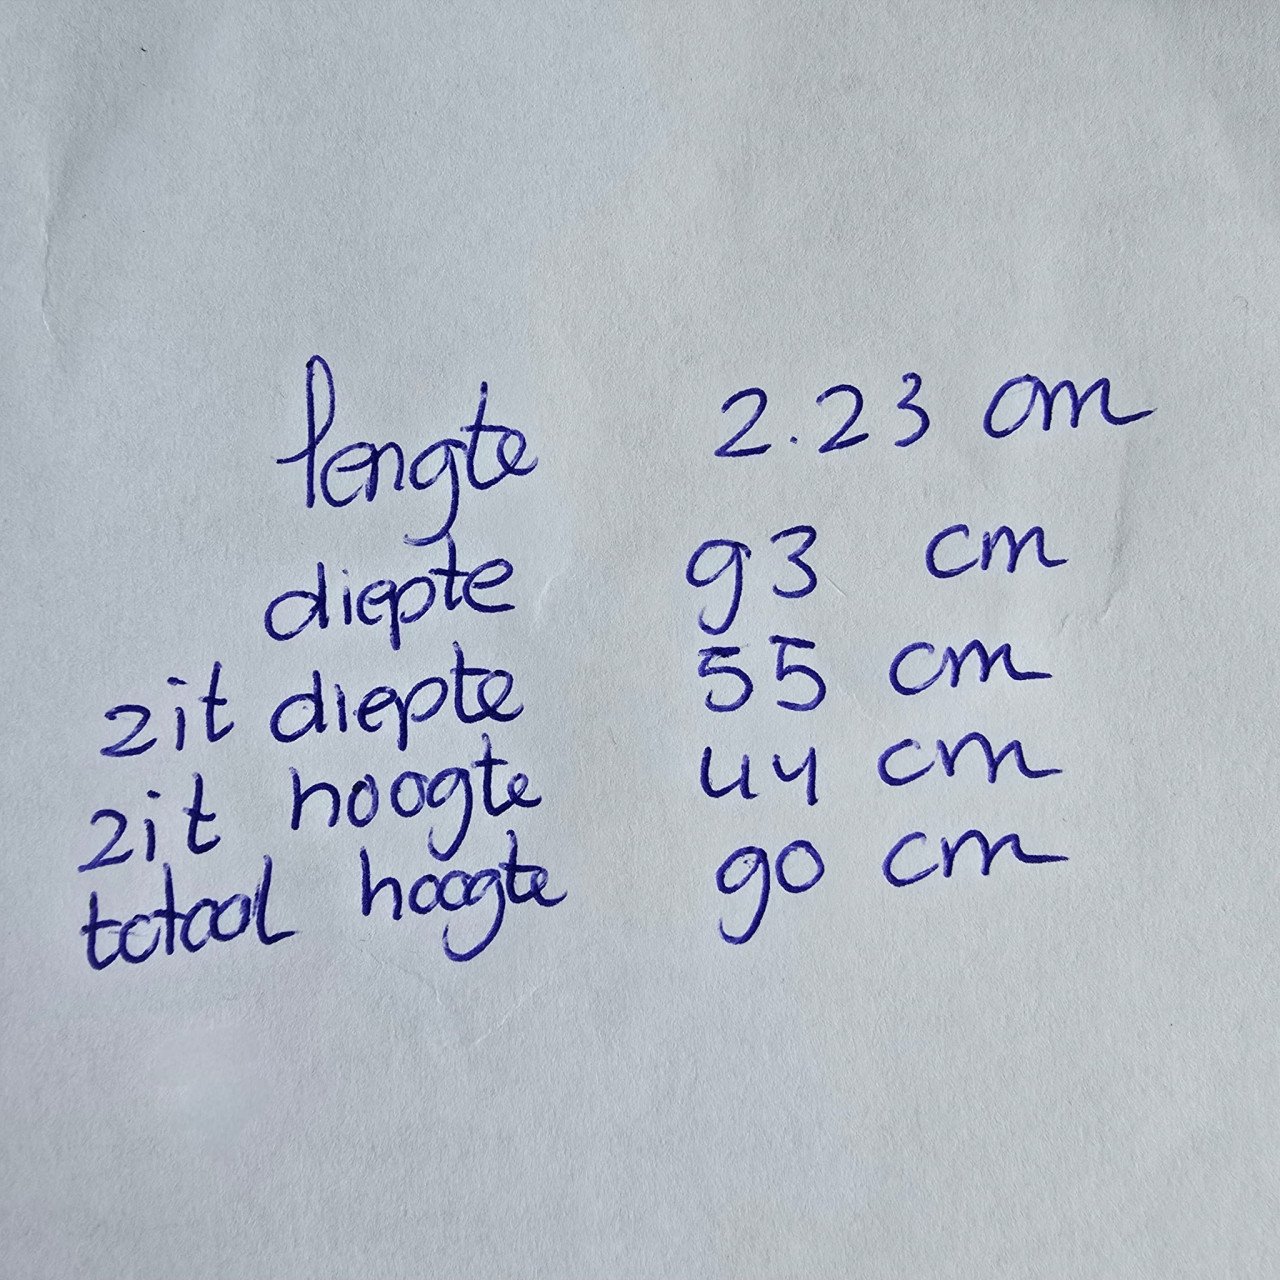 lengte 2.23 cm
diepte 93 cm
zit diepte 55 cm
zit hoogte 44 cm
totaal hoogte 90 cm